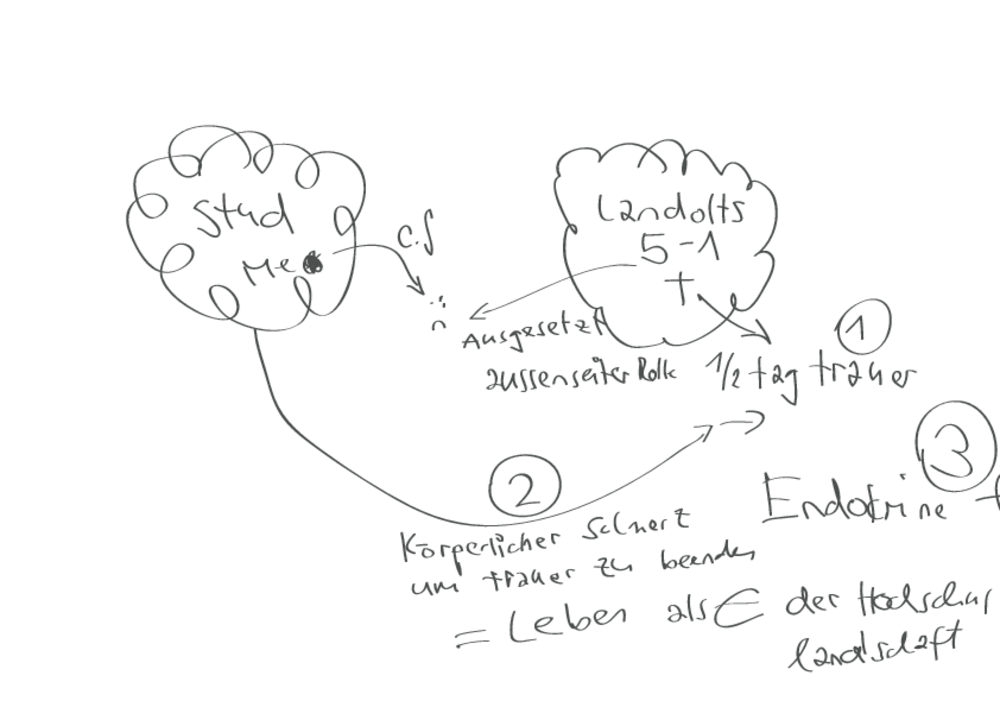 Stud
Me
C.S
Landolts
5-1
+
Ausgesetzt
aussenseiter Rolle
1
1/2 tag trauer
2
3
Endokrine
Körperlicher Schmerz
um trauer zu beenden
= Leben als ∈ der Hochschul
landschaft